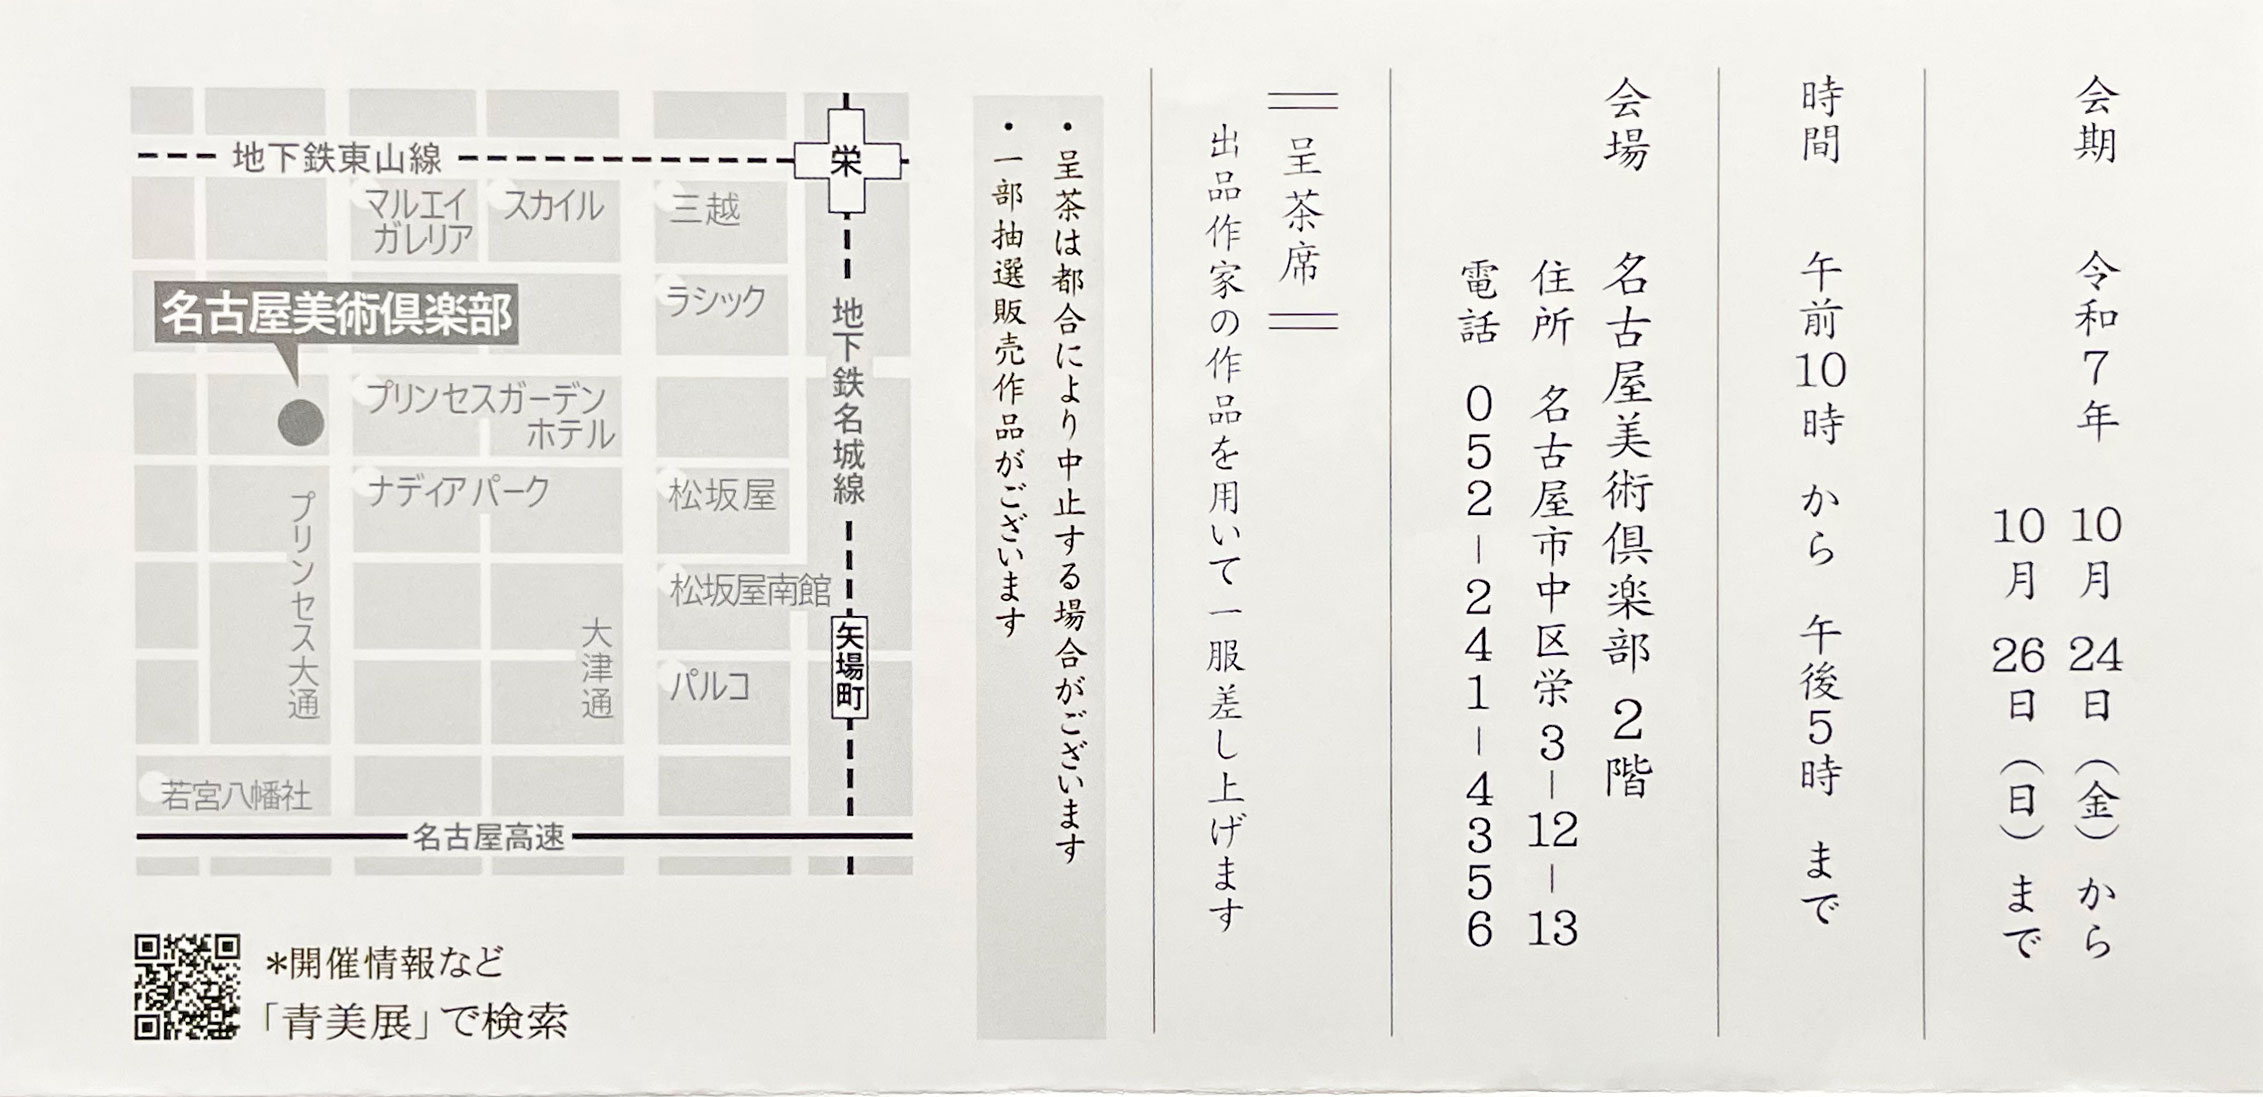 会期 令和7年 10月24日（金）から
10月26日（日）まで
時間 午前10時から 午後5時 まで
会場 名古屋美術倶楽部 2階
住所 名古屋市中区栄3-12-13
電話 052-241-4356
呈茶席
出品作家の作品を用いて一服差し上げます
・呈茶は都合により中止する場合がございます
・一部抽選販売作品がございます
地下鉄東山線
栄
マルエイ
ガレリア
スカイル
三越
名古屋美術倶楽部
ラシック
地下鉄名城線
プリンセスガーデン
ホテル
ナディアパーク
松坂屋
プリンセス大通
松坂屋南館
大津通
矢場町
パルコ
若宮八幡社
名古屋高速
*開催情報など
「青美展」で検索